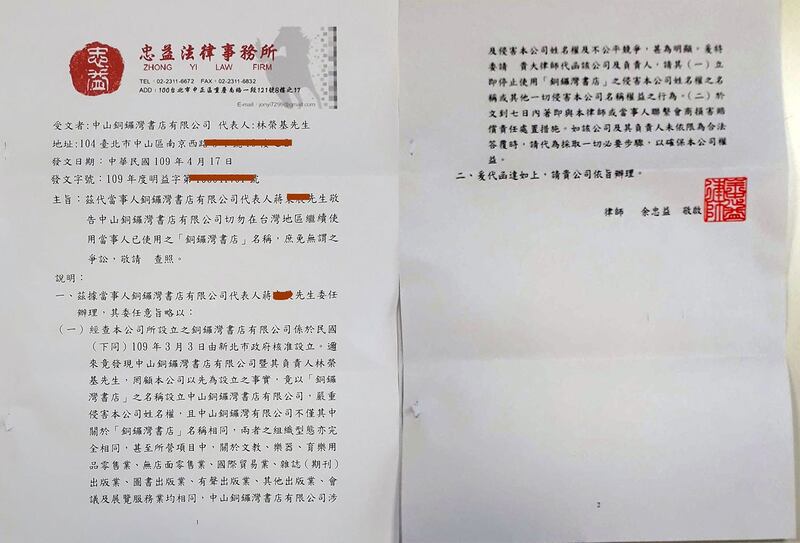 忠益
忠益法律事務所
ZHONG YI LAW FIRM
TEL：02-2311-6672 FAX：02-2311-6832
ADD：100台北市中正區重慶南路一段121號8樓之17
E-mail：jonyi7299@gmail.com
受文者：中山銅鑼灣書店有限公司 代表人：林榮基先生
地址：104臺北市中山區南京西路
發文日期：中華民國 109 年 4 月 17 日
發文字號：109 年度明益字第 號
主旨：茲代當事人銅鑼灣書店有限公司代表人蔣 先生敬
告中山銅鑼灣書店有限公司切勿在台灣地區繼續使
用當事人已使用之「銅鑼灣書店」名稱，庶免無謂之
爭訟，敬請 查照。
說明：
一、茲據當事人銅鑼灣書店有限公司代表人蔣 先生委任
辦理，其委任意旨略以：
（一）經查本公司所設立之銅鑼灣書店有限公司係於民國
（下同）109 年 3 月 3 日由新北市政府核准設立。邇
來竟發現中山銅鑼灣書店有限公司暨其負責人林榮
基先生，罔顧本公司以先為設立之事實，竟以「銅鑼
灣書店」之名稱設立中山銅鑼灣書店有限公司，嚴重
侵害本公司姓名權，且中山銅鑼灣有限公司不僅其中
關於「銅鑼灣書店」名稱相同，兩者之組織型態亦完
全相同，甚至所營項目中，關於文教、樂器、育樂用
品零售業、無店面零售業、國際貿易業、雜誌(期刊)
出版業、圖書出版業、有聲出版業、其他出版業、會
議及展覽服務業均相同，中山銅鑼灣書店有限公司涉
1
及侵害本公司姓名權及不公平競爭，甚為明顯。爰特
委請 貴大律師代函該公司及負責人，請其（一）立
即停止使用「銅鑼灣書店」之侵害本公司姓名權之名
稱或其他一切侵害本公司名稱權益之行為。（二）於
文到七日內著即與本律師或當事人聯繫會商損害賠
償責任處置措施。如該公司及其負責人未依限為合法
答覆時，請代為採取一切必要步驟，以確保本公司權
益。
二、爰代函達如上，請貴公司依旨辦理。
律師 余忠益 敬啟
2